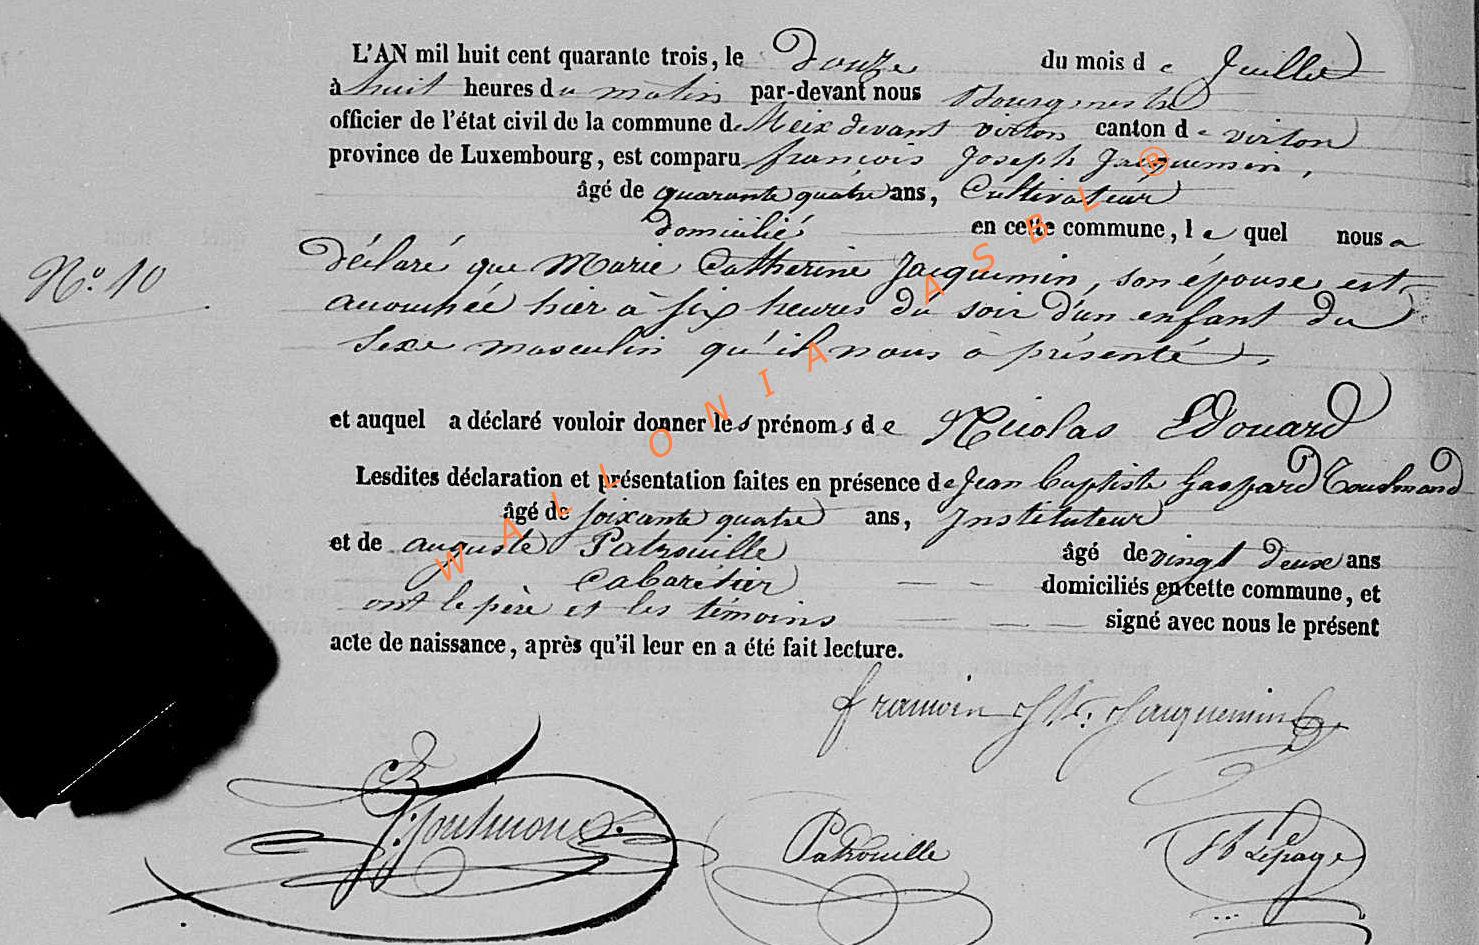 L'AN mil huit cent quarante trois, le douze du mois de Juillet
à huit heures du matin par-devant nous Bourgmestre
officier de l'état civil de la commune de Meix devant virton canton de virton
province de Luxembourg, est comparu françois Joseph Jacquemin,
âgé de quarante quatre ans, Cultivateur
domicilié en cette commune, lequel nous a
N.º 10
déclaré que Marie Catherine Jacquemin, son épouse est
accouchée hier à six heures du soir d'un enfant du
sexe masculin qu'il nous à présenté,
et auquel a déclaré vouloir donner les prénoms de Nicolas Edouard
Lesdites déclaration et présentation faites en présence de Jean Baptiste Gaspard Toussmond
âgé de soixante quatre ans, Instituteur
et de auguste Patrouille âgé de vingt deux ans
Cabaretier domiciliés en cette commune, et
ont le père et les témoins signé avec nous le présent
acte de naissance, après qu'il leur en a été fait lecture.
françois Jh. Jacquemin
Patrouille
Lepage
WALLONIA ASBL ®